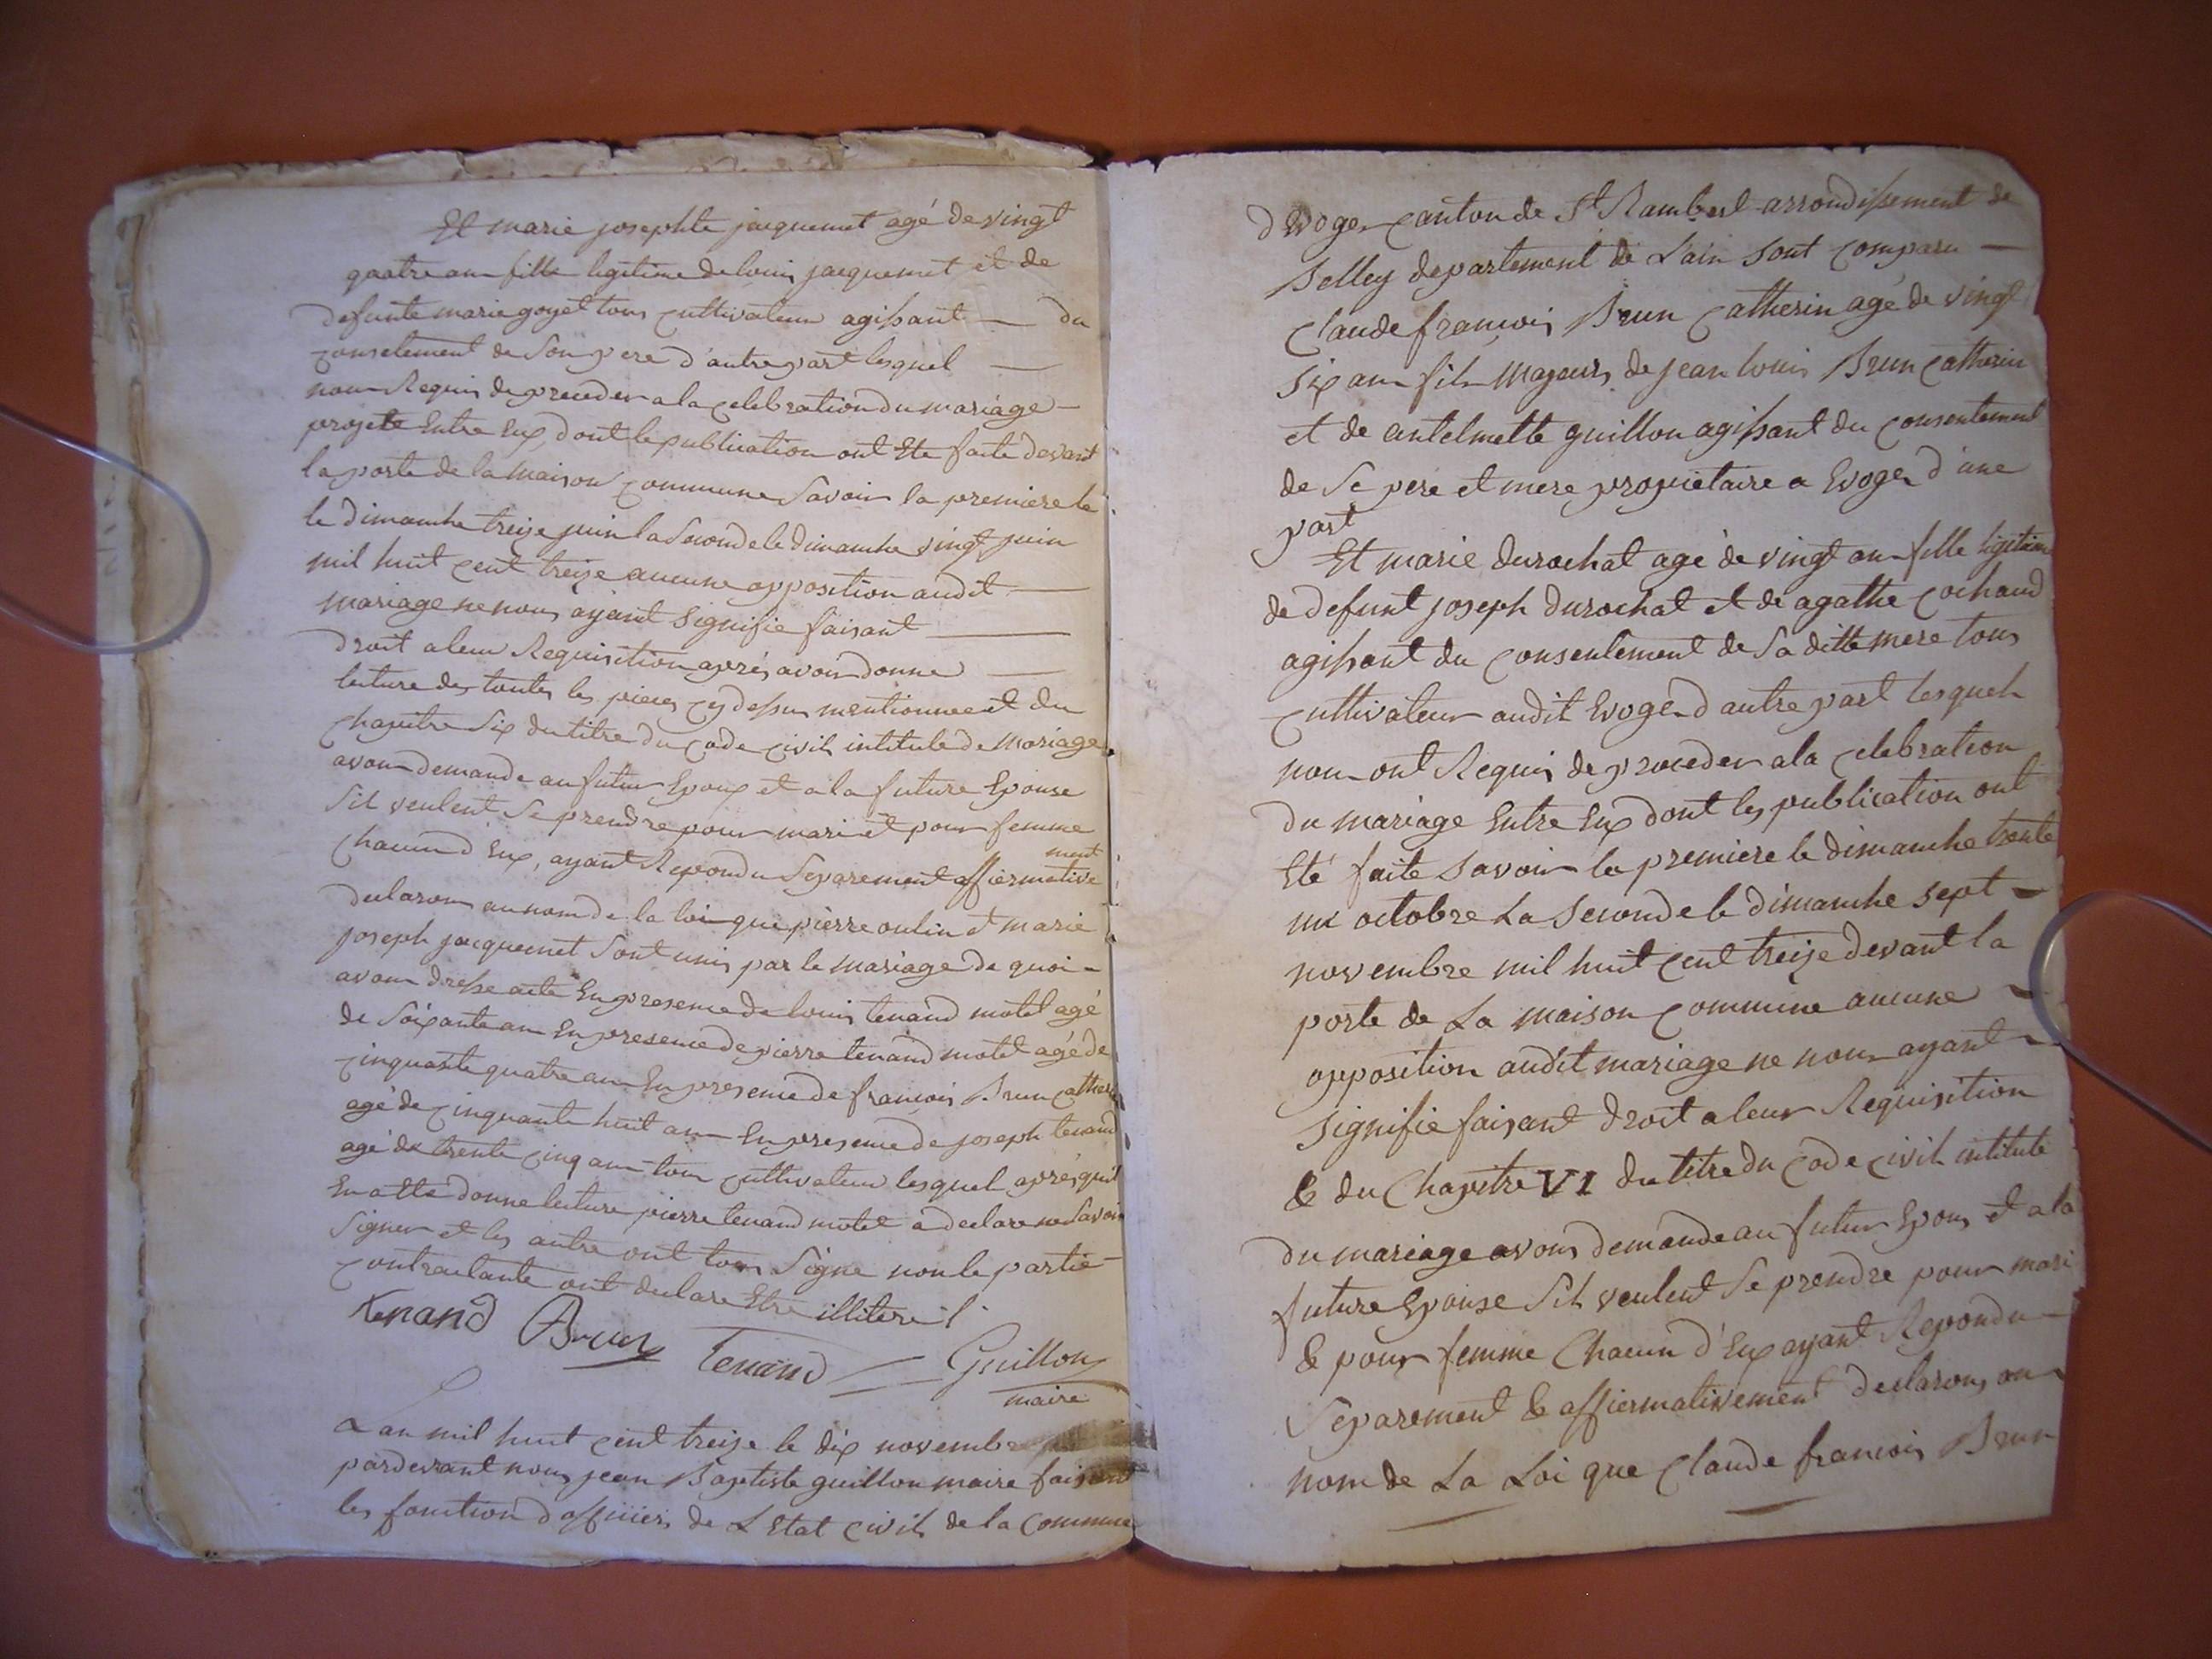 Et marie josephte jacquemet agé de vingt
quatre an fille legitime de louis jacquemet et de
defunte marie goyet tous cultivateur agissant — du
consetement de son pere d'autre part lesquel —
nous Requis de proceder a la celebration du mariage —
projete Entre Eux, dont le publication ont Ete faite devant
la porte de la maison commune savoir la premiere le
le dimanche treize juin la seconde le dimanche vingt juin
mil huit cent treize aucune opposition audit —
mariage ne nous ayant signifie faisant —
droit a leur Requisition aprés avoir donne —
lecture de toutes les pieces cy dessus mentionnee et du
chapitre six du titre du code civil intitule de Mariage
avons demande au futur Epoux et a la future Epouse
sil veulent se prendre pour mari et pour femme
chacun d'Eux, ayant Repondu separement affiermative
ment
declarons au nom de la loi que pierre oulin et marie
joseph jacquemet sont unis par le mariage de quoi —
avons dresse acte En presence de louis tenand motet agé
de soixante an En presence de pierre tenand motet agé de
cinquante quatre an En presence de francois Brun catherin
agé de cinquante huit an En presence de joseph tenand
agé de trente cinq an tous cultivateur lesquel aprés qu'il
En a Ete donne lecture pierre tenand motet a declare ne savoir
signer et les autre ont tous signe non le partie —
contractante ont declare Etre illitere
tenand Brun Tenand Guillon
maire
L an mil huit cent treize le dix novembre
pardevant nous jean Baptiste guillon maire faisant
les fonction d officier de L Etat civil de la commune
d Evoges canton de St Rambert arrondissement de
Belley departement de L'ain sont comparu —
Claude francois Brun Catherin agé de vingt
six an fils majeurs de jean louis Brun Catherin
et de antelmette guillon agissant du consentement
de se pere et mere propriétaire a Evoges d'une
part
Et marie durochat agé de vingt an fille ligitime
de defunt joseph durochat et de agathe cochand
agissant du consentement de sa ditte mere tous
cultivateur audit Evoges d autre part lesquels
nous ont Requis de proceder a la celebration
du mariage Entre Eux dont les publication ont
Eté faite savoir la premiere le dimanche trente
un octobre La seconde le dimanche sept —
novembre mil huit cent treize devant la
porte de La maison commune aucune —
opposition audit mariage ne nous ayant —
signifie faisant droit a leur Requisition
& du Chapitre VI du titre du code civil intitulé
du mariage avons demande au futur Epous et a la
future Epouse sil veulent se prendre pour mari
& pour femme Chacun d'Eux ayant Repondu —
separement & affiermativement declarons au
nom de La Loi que Claude francois Brun